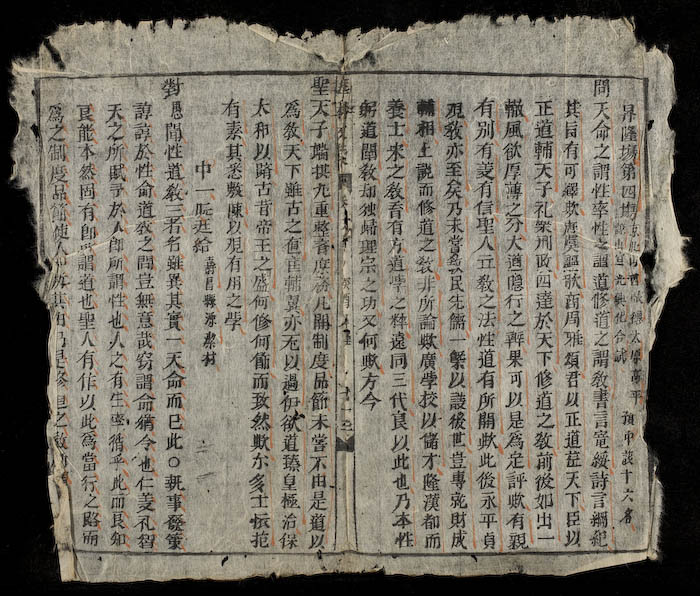 昇隆場第四場 預中該十六名
問天命之謂性率性之謂道修道之謂教書言寔綏詩言綱紀
其旨有可繹歟虞賡歌商周雅頌君以正道莅天下臣以
正道輔天子礼楽刑政四達於天下修道之教前後如出一
轍風欲厚薄之分大道隐行之殊果可以是為定評歟有親
有别有義有信聖人立教之法性道有所関歟此後永平貞
現教亦至矣乃未嘗教民先儒一槩以議後世豈専就財成
輔相上説而修道之教非所論歟廣學校以儲才隆漢都而
養士宋之教育有方道學之粹遠同三代良以此也乃本性
躬道闡教却独歸理宗之功又何歟方今
聖天子端拱九重整百度務凡関制度品節未嘗不由是道以
為教天下雖古之奮庸輔翼亦无以過伊欲道臻皇極治保
太和以踏古昔帝王之盛何修何飭而致然歟尔多士懷抱
有素其悉敷陳以現有用之學
中一阮廷給 壽昌縣
對愚聞性道教三者名雖異其實一天命而已此○執事發策
諄諄於性命道教之間豈無意哉窃謂命猶令也仁義礼智
天之所賦予於人即所謂性也人之有生率循乎此而良知
良能本然固有即所謂道也聖人有作以此為當行之路而
為之制度品節使人 是修道之教